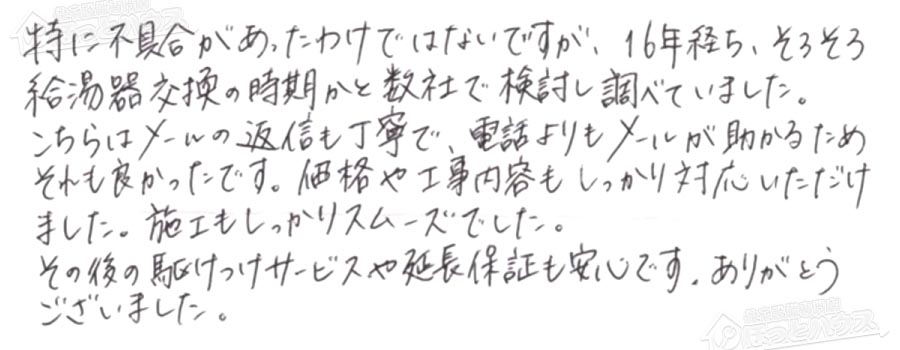 特に不具合があったわけではないですが、16年経ち、そろそろ
給湯器交換の時期かと数社で検討し調べていました。
こちらはメールの返信も丁寧で、電話よりもメールが助かるため
それも良かったです。価格や工事内容もしっかり対応いただけ
ました。施工もしっかりスムーズでした。
その後の駆けつけサービスや延長保証も安心です。ありがとう
ございました。
ほっとハウス